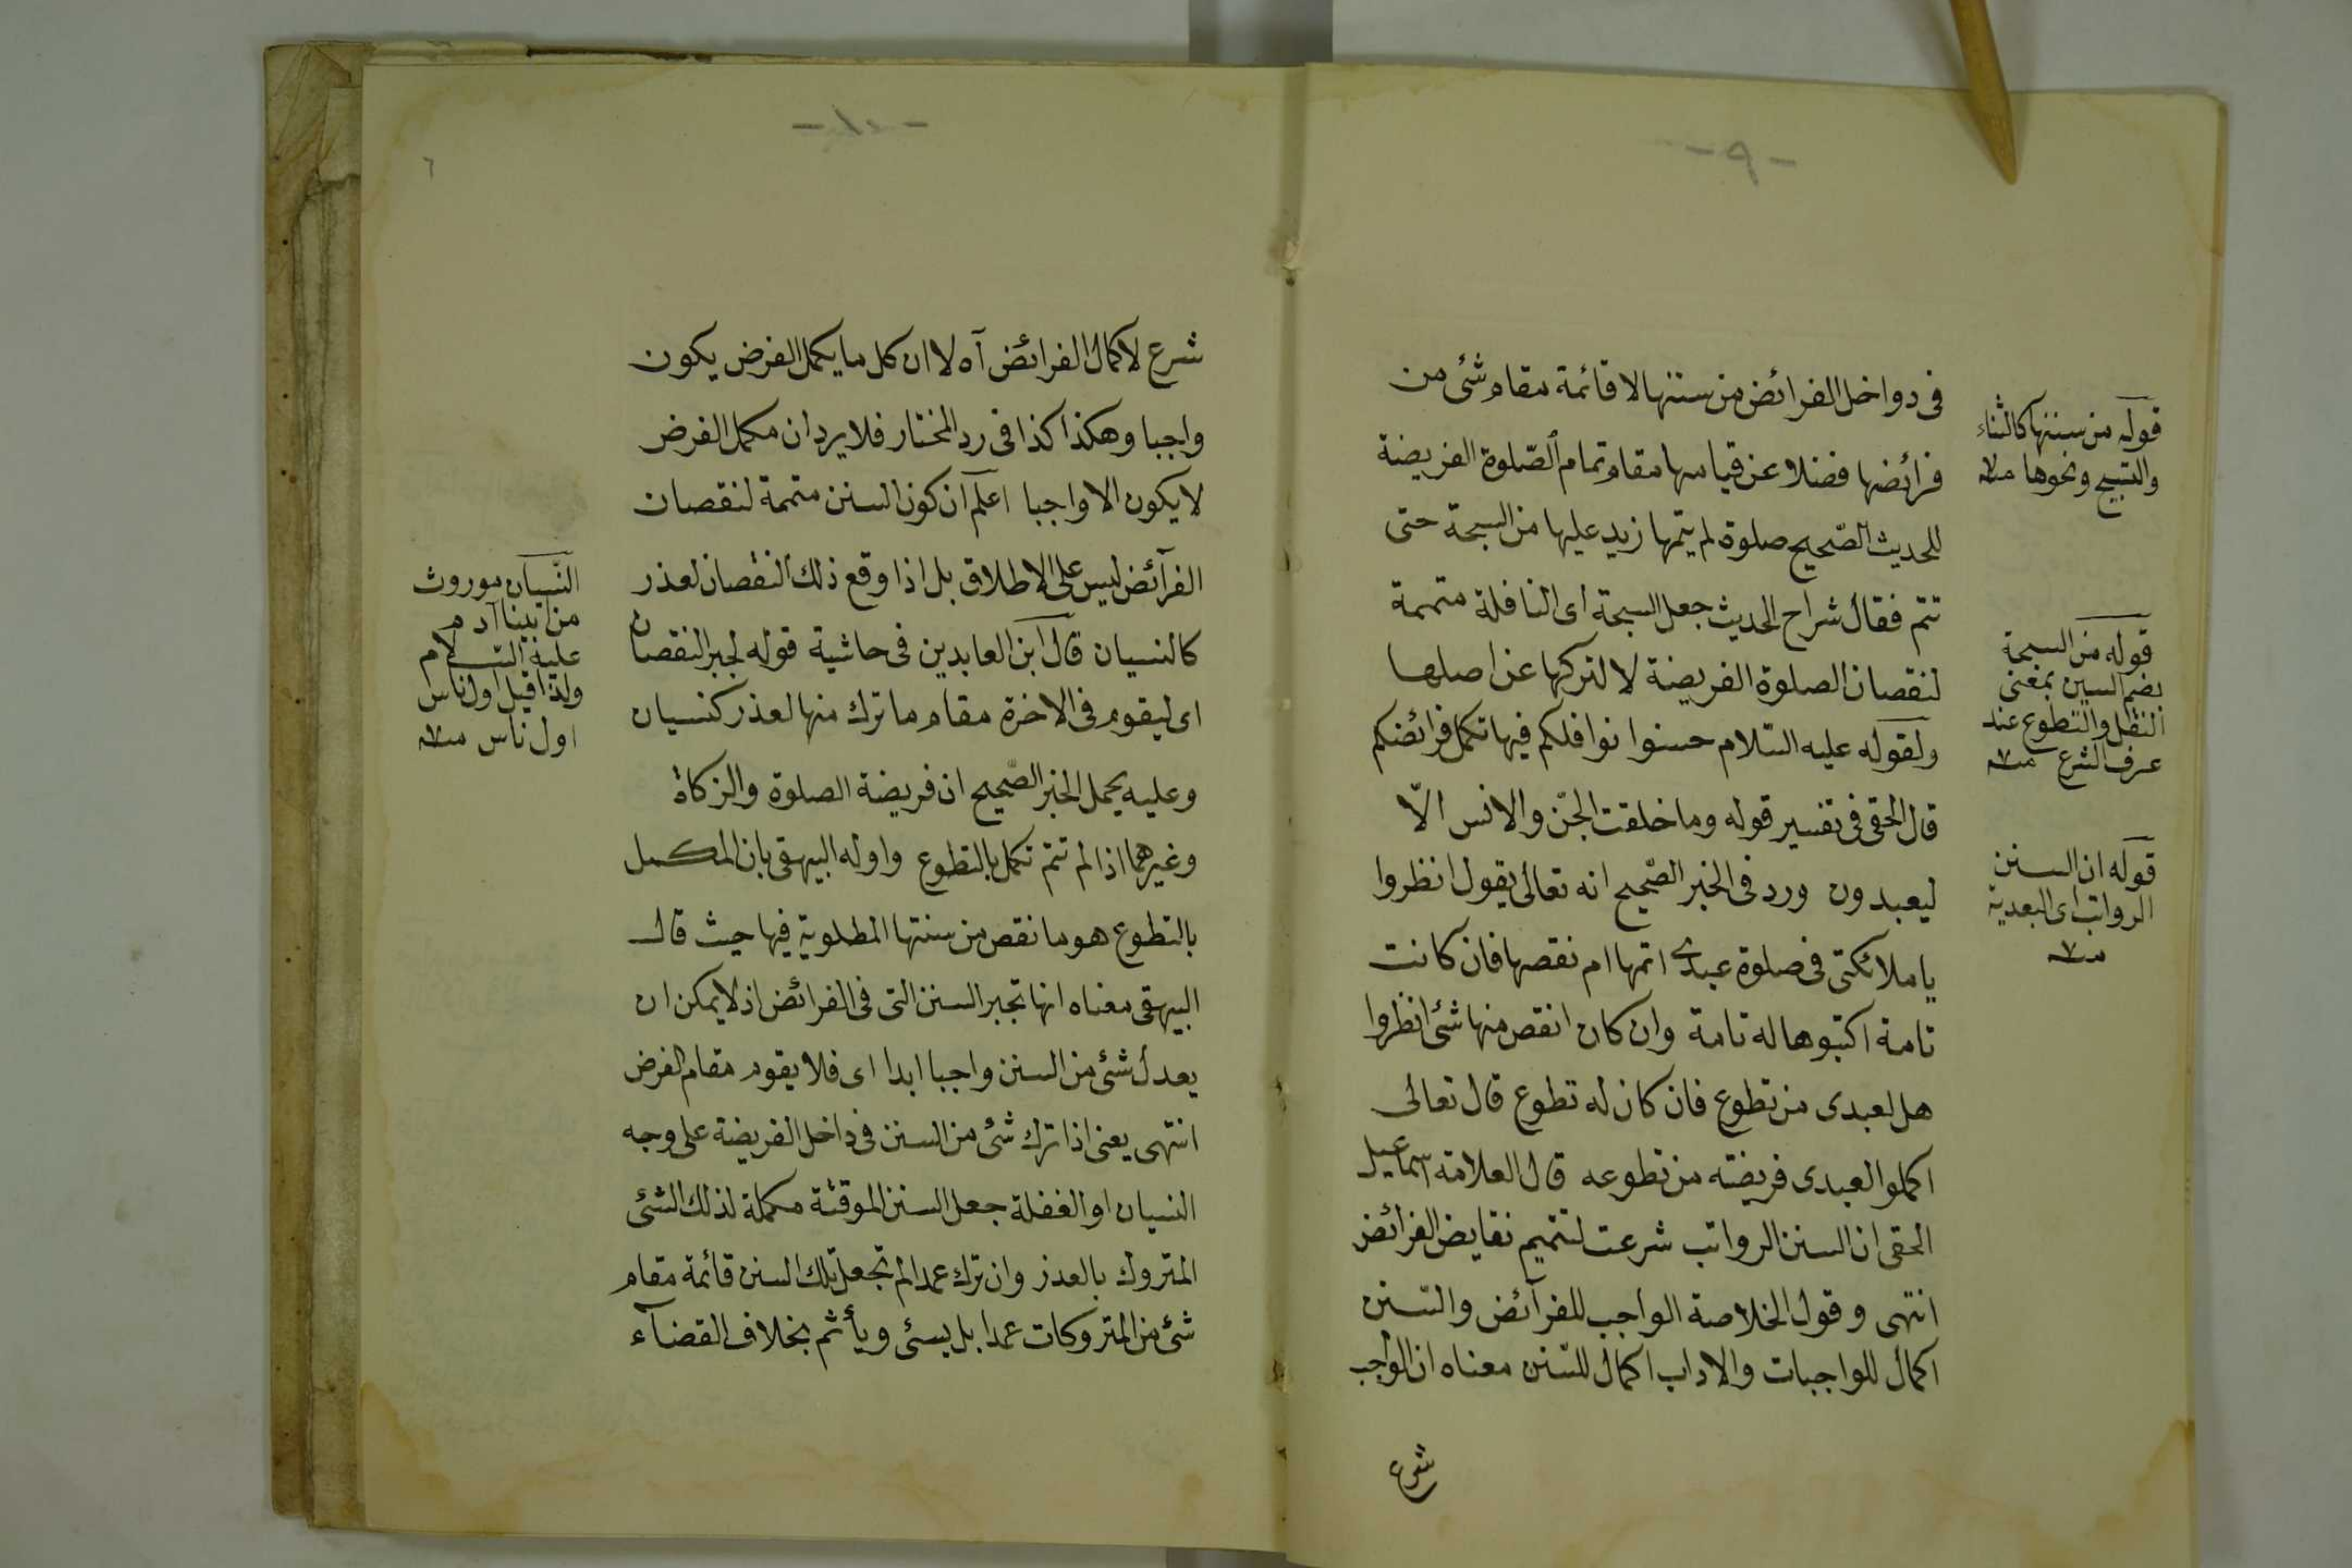 - ٩ -
فى دواخل الفرائض من سننها لا قائمة مقام شئ من
فرائضها فضلا عن قياسها مقام تمام الصّلوة الفريضة
للحديث الصّحيح صلوة لم يتمها زيد عليها من السبحة حتى
تتم فقال شراح الحديث جعل السبحة اى النافلة متممة
لنقصان الصلوة الفريضة لا لتركها عن اصلها
ولقوله عليه السّلام حسنوا نوافلكم فبها تكمل فرائضكم
قال الحقى فى تفسير قوله وما خلقت الجنّ والانس الّا
ليعبدون ورد فى الخبر الصّحيح انه تعالى يقول انظروا
يا ملائكتى فى صلوة عبدى اتمها ام نقصها فان كانت
تامة اكتبوها له تامة وان كان انقص منها شئ انظروا
هل لعبدى من تطوع فان كان له تطوع قال تعالى
اكملوا لعبدى فريضته من تطوعه قال العلامة اسماعيل
الحقى ان السنن الرواتب شرعت لتتميم نقايض الفرائض
انتهى وقول الخلاصة الواجب للفرآئض والسّنن
اكمال للواجبات والاداب اكمال للسّنن معناه ان الواجب
شرع
قوله من سننها كالثناء
والتسبيح ونحوها منه
قوله من السبحة
بضم السين بمعنى
النفل والتطوع عند
عرف الشرع منه
قوله ان السنن
الرواتب اى البعدية
منه
- ١٠ -
٦
شرع لاكمال الفرائض آه لا ان كل ما يكمل الفرض يكون
واجبا وهكذا كذا فى رد المختار فلا يرد ان مكمل الفرض
لا يكون الا واجبا اعلم ان كون السنن متممة لنقصان
الفرآئض ليس على الاطلاق بل اذا وقع ذلك النقصان لعذر
كالنسيان قال ابن العابدين فى حاشية قوله لجبر النقصان
اى ليقوم فى الاخرة مقام ما ترك منها لعذر كنسيان
وعليه يحمل الخبر الصّحيح ان فريضة الصلوة والزكاة
وغيرهما اذا لم تتم تكمل بالتطوع واوله البيهقى بان المكمل
بالتطوع هو ما نقص من سنتها المطلوبة فيها حيث قال
البيهقى معناه انها تجبر السنن التى فى الفرائض اذ لا يمكن ان
يعدل شئ من السنن واجبا ابدا اى فلا يقوم مقام الفرض
انتهى يعنى اذا ترك شئ من السنن فى داخل الفريضة على وجه
النسيان او الغفلة جعل السنن الموقتة مكملة لذلك الشئ
المتروك بالعذر وان ترك عمدا لم تجعل تلك السنن قائمة مقام
شئ من المتروكات عمدا بل يسئ ويأثم بخلاف القضآء
النّسيان موروث
من ابينا آدم
عليه السّلام
ولذا قيل اول ناس
اول ناس منه